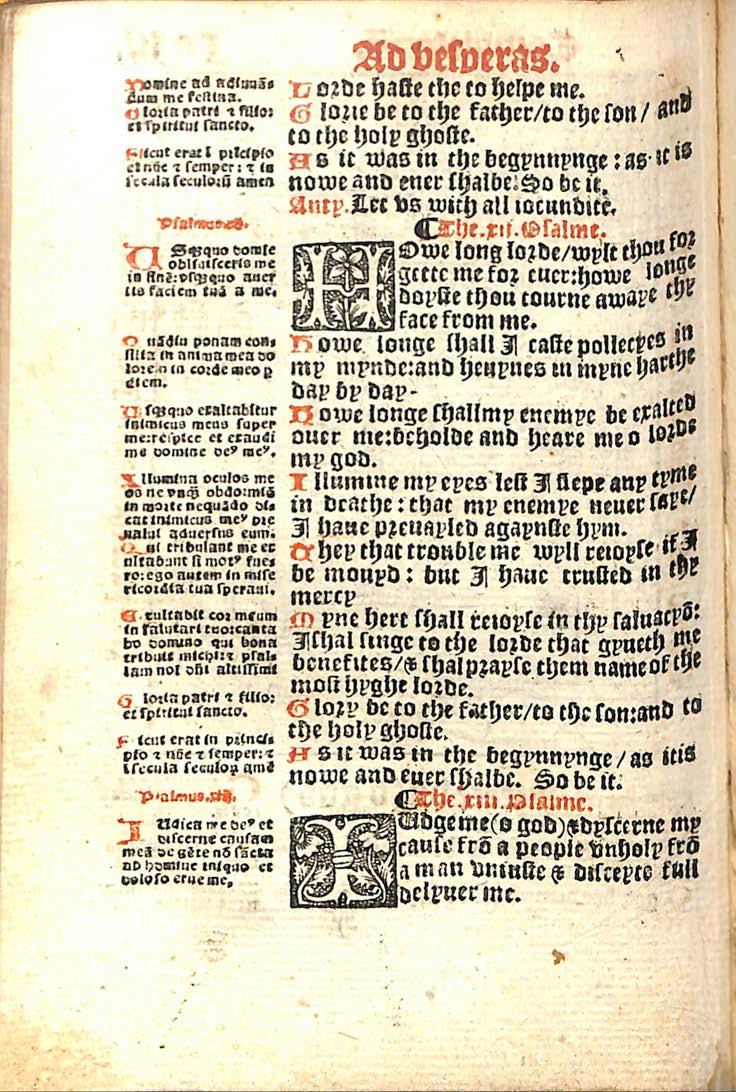 Ad vesperas.
Domine ad adiuuãs
dum me festina.
Gloria patri ⁊ filio:
et spiritui sancto.
Sicut erat ĩ prĩcipio
et nũc ⁊ semper: ⁊ in
secula seculorũ amen
Psalmus.
Usquequo domie
obliuisceris me
in finẽ: vsquequo auer
tis faciem tuã a me.
Quãdiu ponam con⸗
silia in anima mea do
lorem in corde meo p
diem.
Usquequo exaltabitur
inimicus meus super
me: respice et exaudi
me domine deꝰ meꝰ.
Illumina oculos me
os ne vnqꝫ obdormiã
in morte nequãdo di⸗
cat inimicus meꝰ pre
ualui aduersus eum.
Qui tribulant me ex
ultabunt si motꝰ fue⸗
ro: ego autem in mise
ricordia tua speraui.
Exultabit cor meum
in salutari tuo: canta
bo domino qui bona
tribuit michi: ⁊ psal⸗
lam noĩ dñi altissimi
Gloria patri ⁊ filio:
et spiritui sancto.
Sicut erat in princi⸗
pio ⁊ nũc ⁊ semper: ⁊
ĩ secula seculoꝝ amẽ
Psalmus.
Iudica me deꝰ et
discerne causam
meã de gẽte nõ sãcta
ab homine iniquo et
doloso erue me.
Lorde haste the to helpe me.
Glorie be to the father/to the son/ and
to the holy ghoste.
As it was in the begynnynge: as it is
nowe and euer shalbe. So be it.
Anty. Let vs with all iocundite.
The .xii. Psalme.
HOwe long lorde/wylt thou for
gette me for euer: howe longe
doyste thou tourne awaye thy
face from me.
Howe longe shall I caste polleces in
my mynde: and heuynes in myne harthe
day by day.
Howe longe shall my enemye be exalted
ouer me: beholde and heare me o lorde
my god.
Illumine my eyes lest I slepe any tyme
in deathe: that my enemye neuer saye/
I haue preuayled agaynste hym.
They that trouble me wyll reioyse if I
be mouyd: but I haue trusted in thy
mercy
Myne hert shall reioyse in thy saluacyõ:
I shal singe to the lorde that gyueth me
benefites/& shal prayse them name of the
most hyghe lorde.
Glory be to the father/to the son: and to
the holy ghoste.
As it was in the begynnynge/as itis
nowe and euer shalbe. So be it.
The .xiii. Psalme.
IUdge me (o god) & dyscerne my
cause frõ a people vnholy frõ
a man vniuste & disceyte full
delyuer me.